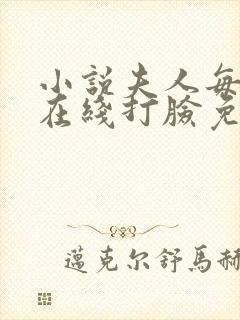 小說夫人每
在綫打臉免
邁克尔舒馬赫